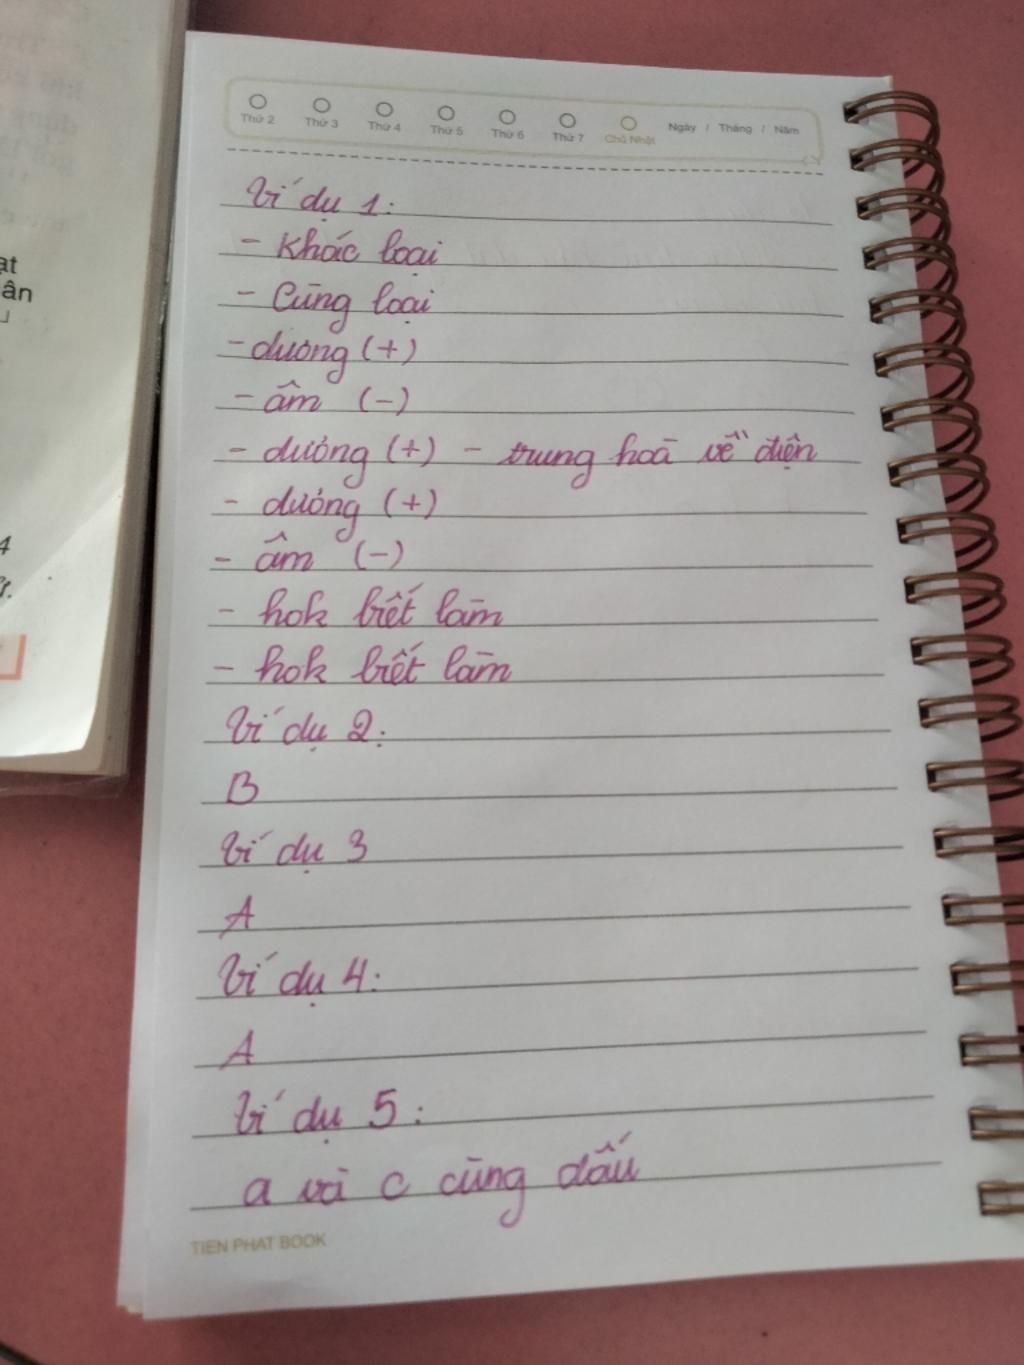 Thứ 2 Thứ 3 Thứ 4 Thứ 5 Thứ 6 Thứ 7 Chủ Nhật Ngày / Tháng / Năm
Ví dụ 1:
- Khác loại
- Cùng loại
- dương (+)
- âm (-)
- dương (+) - trung hoà về điện
- dương (+)
- âm (-)
- hok biết làm
- hok biết làm
Ví dụ 2:
B
Ví dụ 3
A
Ví dụ 4:
A
Ví dụ 5:
a và c cùng dấu
TIEN PHAT BOOK
ạt
ân
4